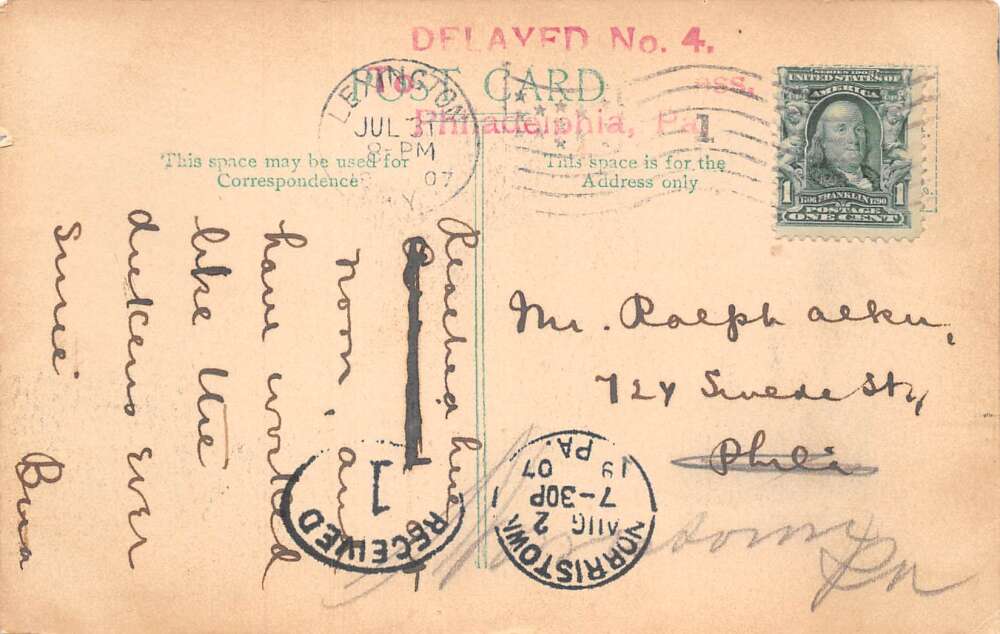 DELAYED No. 4.
To
ess,
Philadelphia, Pa.
POST CARD
JUL 31
8-PM
07
Y.
1
SERIES 1902
UNITED STATES OF
AMERICA
1 1
1706 FRANKLIN 1790
POSTAGE
ONE CENT
This space may be used for
Correspondence
This space is for the
Address only
Reached here
noon. am
have worked
like the
dickens ever
since
Mr. Ralph
724 Swede St.,
Phila
Norristown
Pa
RECEIVED
1
NORRISTOWN
PA.
AUG 2
7-30P
19 07